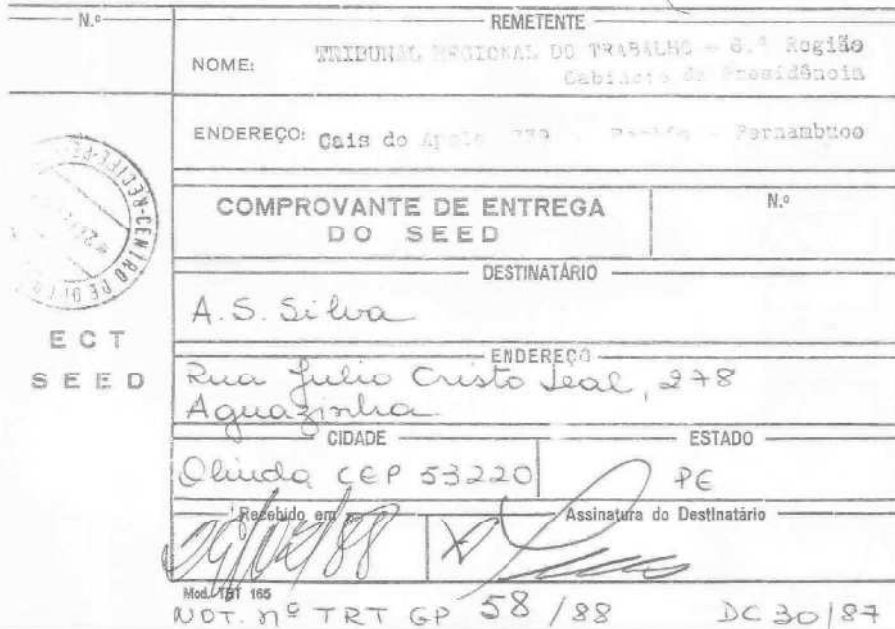 N.º
REMETENTE
NOME: TRIBUNAL REGIONAL DO TRABALHO - 6.ª Região
Gabinete da Presidência
ENDEREÇO: Cais do Apolo 739 - Recife - Pernambuco
COMPROVANTE DE ENTREGA
DO SEED
N.º
DESTINATÁRIO
A.S. Silva
ECT
SEED
ENDEREÇO
Rua Julio Cristo Leal, 278
Aguazinha
CIDADE
ESTADO
Olinda CEP 53220
PE
Recebido em
Assinatura do Destinatário
Mod. TRT 165
NOT. nº TRT GP 58/88 DC 30/87